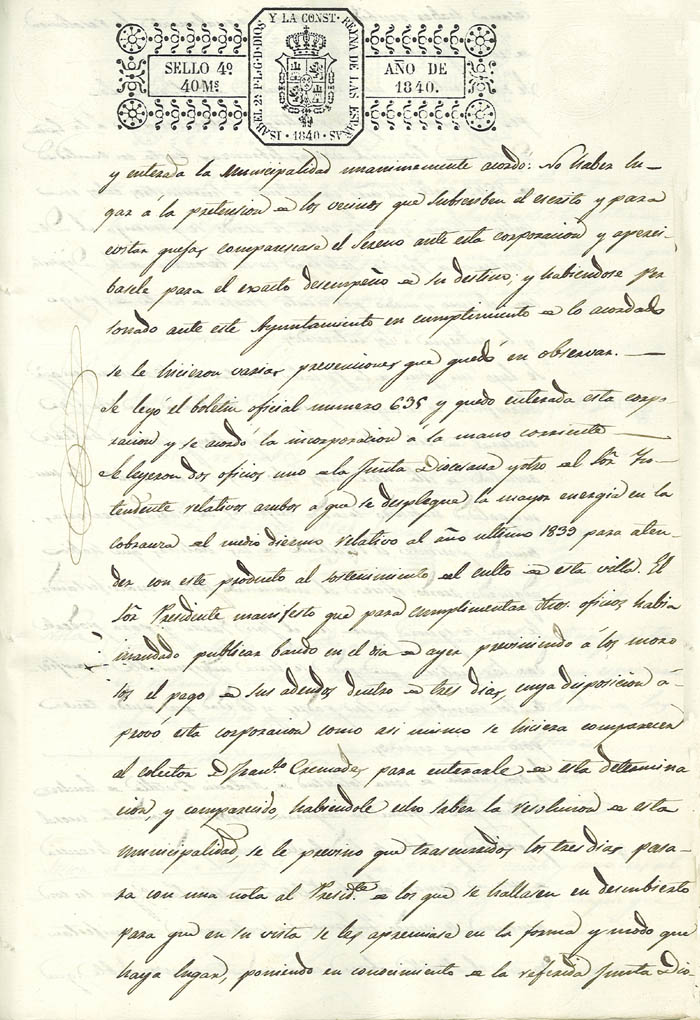 Y LA CONST. REYNA DE LAS ESPAÑAS
ISABEL 2ª P.L.G.D.DIOS
SELLO 4º
40 Ms
AÑO DE
1840.
1840
y enterada la Municipalidad unanimemente acordó: No haber lu-
gar á la pretension de los vecinos que subscriben el escrito y para
evitar quejas comparescase el Sereno ante esta corporacion y aperci-
basele para el exacto desempeño de su destino; y habiendose per
sonado ante este Ayuntamiento en cumplimiento de lo acordado
se le hicieron varias prevenciones que quedó en observar.
Se leyó el boletin oficial numero 635 y quedo enterada esta corpo-
racion y se acordó la incorporacion á la mano corriente
Se leyeron dos oficios uno de la Junta Diocesana y otro del Sor. In-
tendente relativos ambos a que se despliegue la mayor energia en la
cobranza del medio diezmo relativo al año ultimo 1839 para aten-
der con este producto al sostenimiento del culto de esta villa. El
Sor. Presidente manifesto que para cumplimentar dhos. oficios habia
mandado publicar bando en el dia de ayer previniendo á los moro
sos el pago de sus adeudos dentro de tres dias, cuya disposicion á-
probó esta corporacion como asi mismo se hiciera comparecer
al colector D. Franco. Cremades para enterarle de esta determina
cion, y comparecido, habiendole echo saber la resolucion de esta
Municipalidad, se le previno que trascurridos los tres dias pasa-
ra con una nota al Presidte. de los que se hallasen en descubierto
para que en su vista se les apremiase en la forma y modo que
haya lugar, poniendo en conocimiento de la referida Junta Dio-